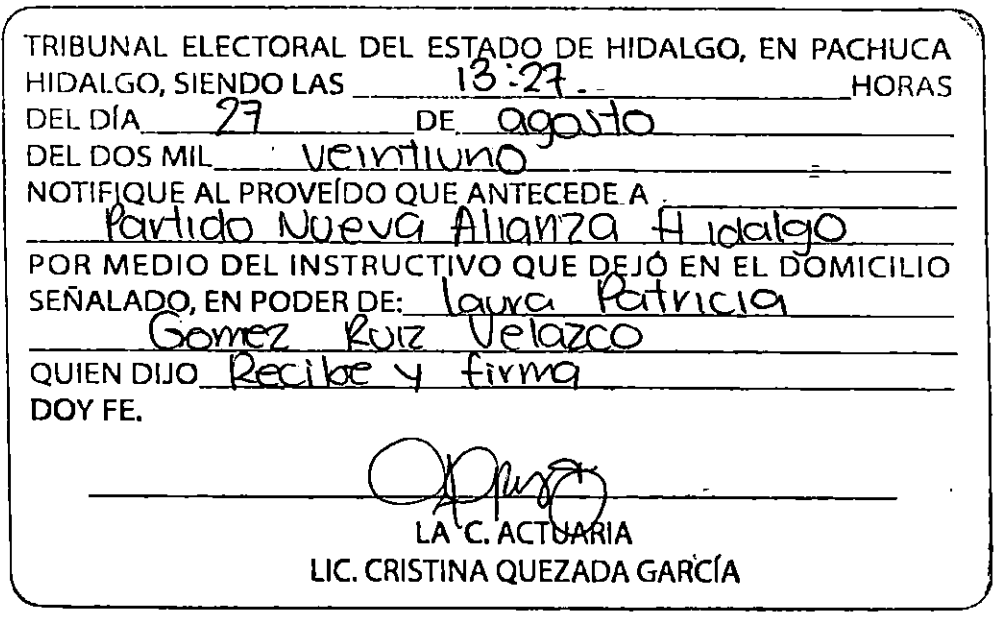 TRIBUNAL ELECTORAL DEL ESTADO DE HIDALGO, EN PACHUCA
HIDALGO, SIENDO LAS 13:27. HORAS
DEL DÍA 27 DE agosto
DEL DOS MIL veintiuno
NOTIFIQUE AL PROVEÍDO QUE ANTECEDE A
Partido Nueva Alianza Hidalgo
POR MEDIO DEL INSTRUCTIVO QUE DEJÓ EN EL DOMICILIO
SEÑALADO, EN PODER DE: laura Patricia
Gomez Ruiz Velazco
QUIEN DIJO Recibe y firma
DOY FE.
LA C. ACTUARIA
LIC. CRISTINA QUEZADA GARCÍA